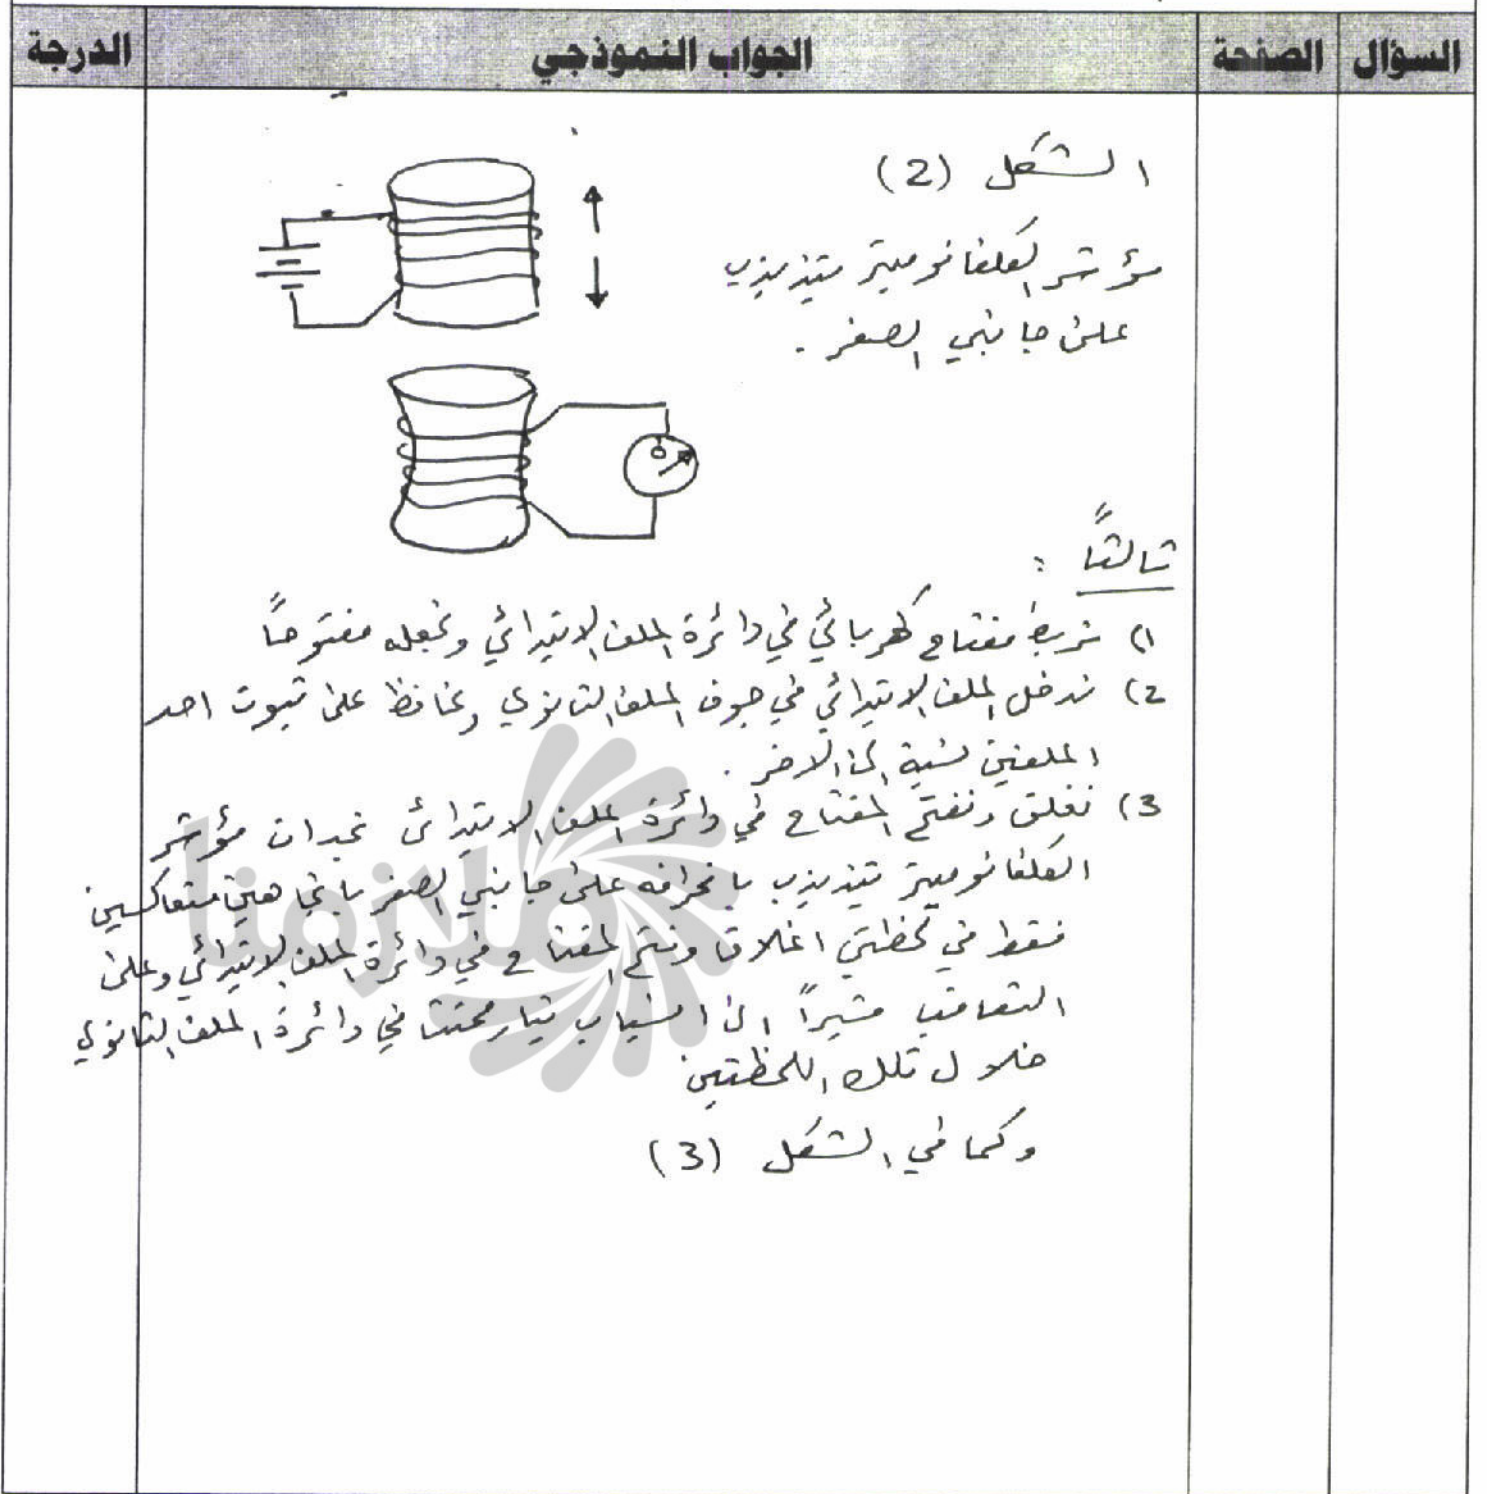 السؤال الصفحة الجواب النموذجي الدرجة
الشكل (2)
مؤشر الكلفانوميتر يتذبذب
على جانبي الصفر .
ثالثاً :
1) نربط مفتاح كهربائي في دائرة الملف الابتدائي ونجعله مفتوحاً
2) ندخل الملف الابتدائي في جوف الملف الثانوي ونحافظ على ثبوت احد
الملفين نسبة الى الاخر .
3) نغلق ونفتح المفتاح في دائرة الملف الابتدائي نجد ان مؤشر
الكلفانوميتر يتذبذب بانحرافه على جانبي الصفر باتجاهين متعاكسين
فقط في لحظتي اغلاق وفتح المفتاح في دائرة الملف الابتدائي وعلى
التعاقب مشيراً الى انسياب تيار محتث في دائرة الملف الثانوي
خلال تلك اللحظتين
وكما في الشكل (3)
ملازمنا